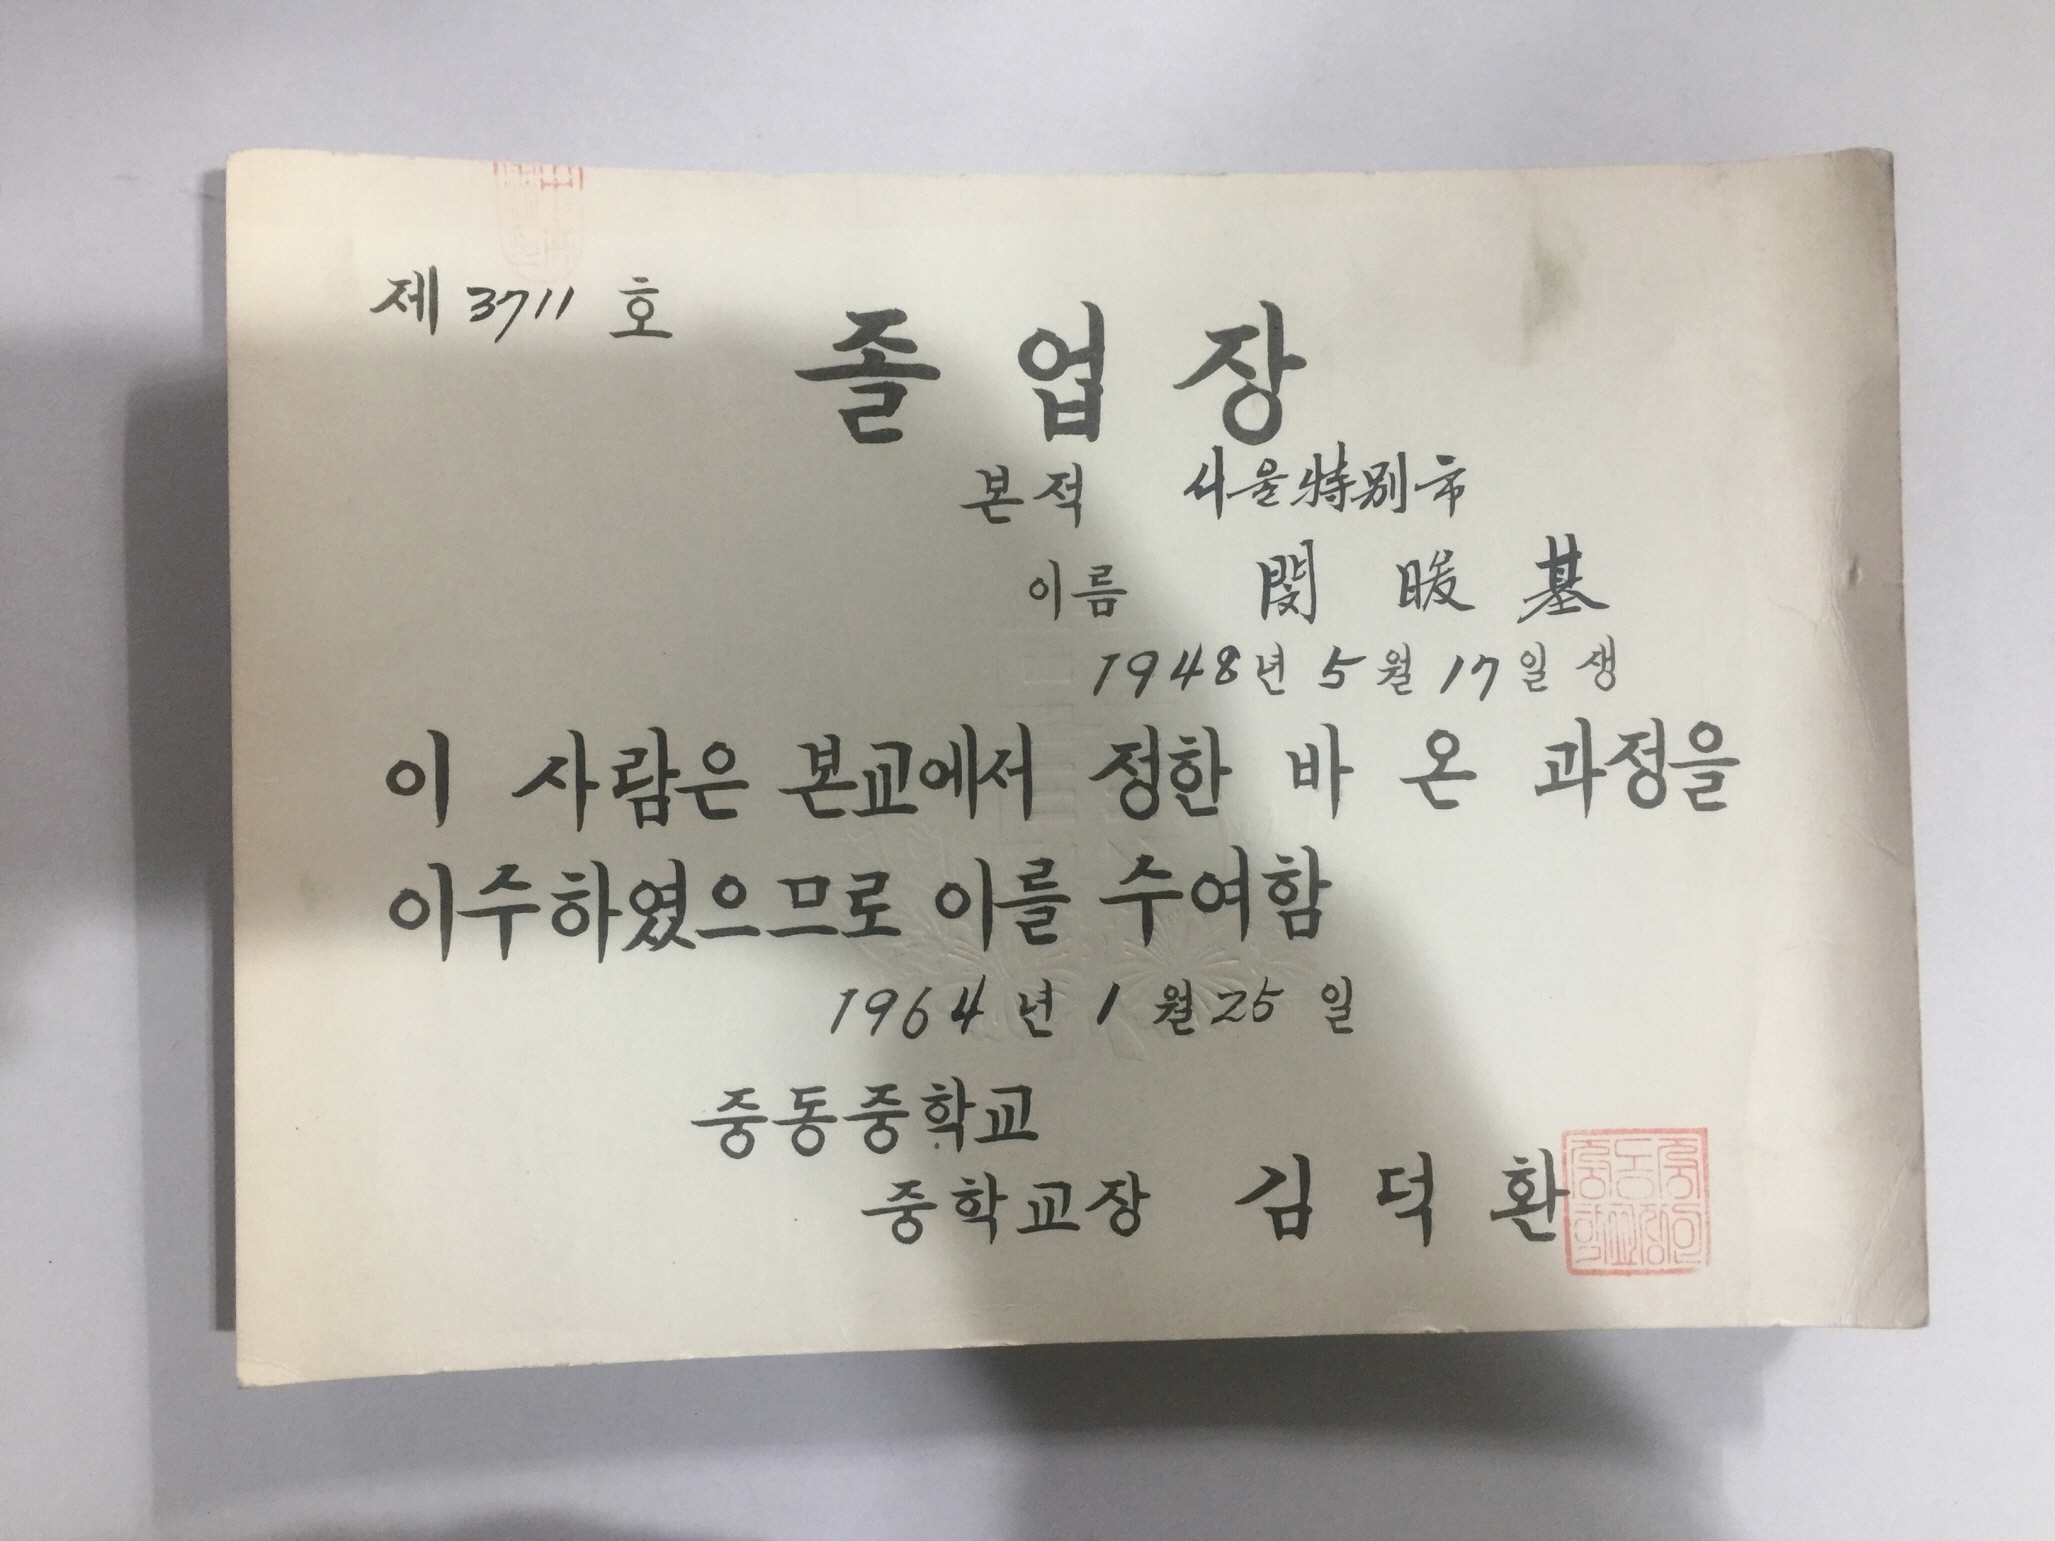 제 3711 호
졸업장
본적 서울特別市
이름 閔暖基
1948년 5월 17일생
이 사람은 본교에서 정한 바 온 과정을
이수하였으므로 이를 수여함
1964년 1월 25일
중동중학교
중학교장 김덕환